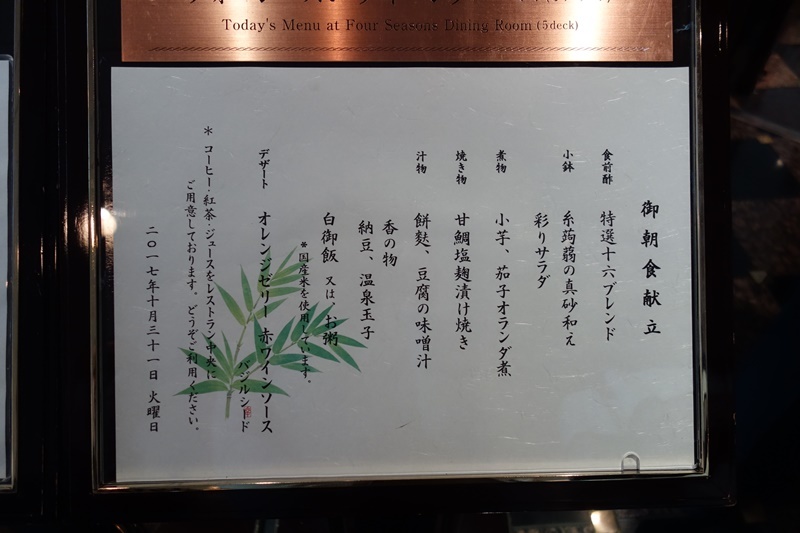 Today's Menu at Four Seasons Dining Room (5deck)
御朝食献立
食前酢 特選十六ブレンド
小鉢 糸蒟蒻の真砂和え
彩りサラダ
煮物 小芋、茄子オランダ煮
焼き物 甘鯛塩麹漬け焼き
汁物 餅麩、豆腐の味噌汁
香の物
納豆、温泉玉子
白御飯 又は、お粥
*国産米を使用しています。
デザート オレンジゼリー 赤ワインソース
バジルシード
* コーヒー・紅茶・ジュースをレストラン中央に
ご用意しております。どうぞご利用ください。
二〇一七年十月三十一日 火曜日